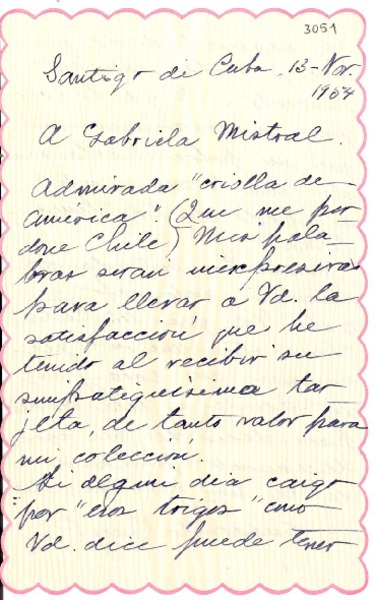 3051
Santigo de Cuba, 13-Nov.
1954
A Gabriela Mistral.
Admirada "criolla de
América". (Que me per-
done Chile) Mis pala-
bras seran inexpresivas
para llevar a Vd. la
satisfacción que he
tenido al recibir su
simpatiquisima tar-
jeta, de tanto valor para
mi colección.
Si algun dia caigo
por "esos trigos" como
Vd. dice puede tener